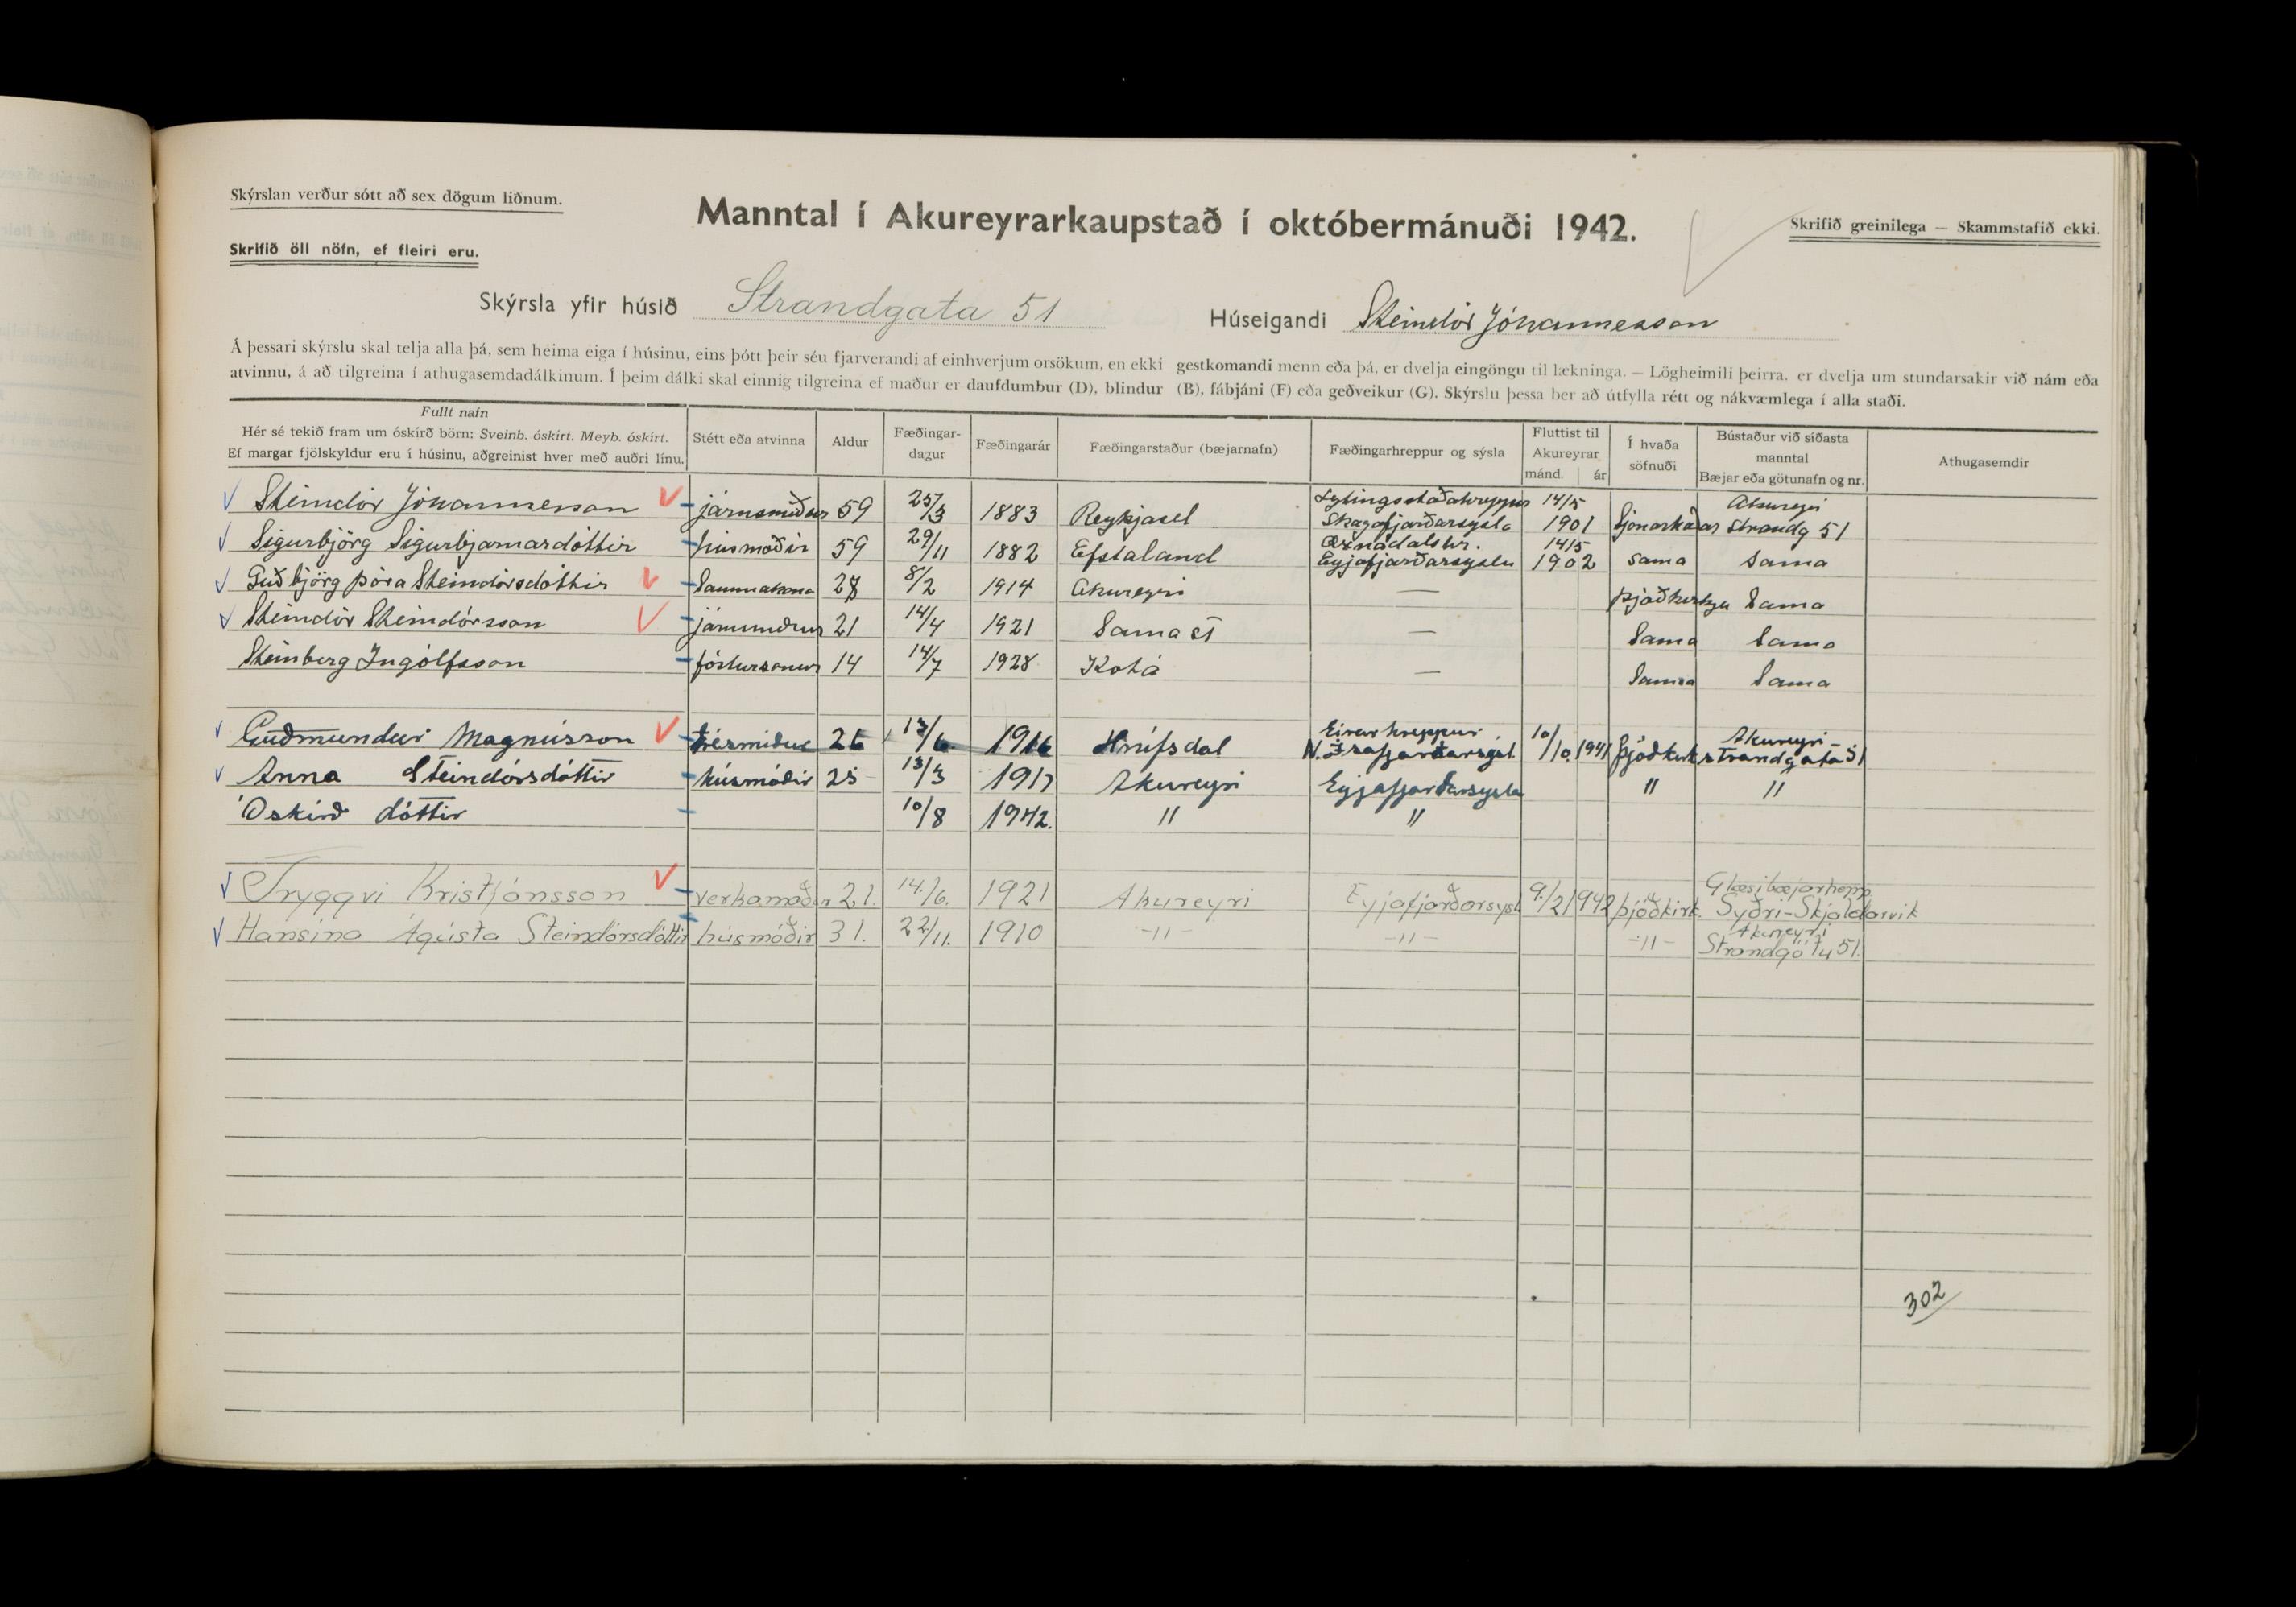 Skýrslan verður sótt að sex dögum liðnum.
Skrifið öll nöfn, ef fleiri eru.
Manntal í Akureyrarkaupstað í októbermánuði 1942.
Skrifið greinilega — Skammstafið ekki.
Skýrsla yfir húsið Strandgata 51 Húseigandi Steindór Jóhannesson
Á þessari skýrslu skal telja alla þá, sem heima eiga í húsinu, eins þótt þeir séu fjarverandi af einhverjum orsökum, en ekki gestkomandi menn eða þá, er dvelja eingöngu til lækninga. — Lögheimili þeirra, er dvelja um stundarsakir við nám eða
atvinnu, á að tilgreina í athugasemdadálkinum. Í þeim dálki skal einnig tilgreina ef maður er daufdumbur (D), blindur (B), fábjáni (F) eða geðveikur (G). Skýrslu þessa ber að útfylla rétt og nákvæmlega í alla staði.
Fullt nafn
Hér sé tekið fram um óskírð börn: Sveinb. óskírt. Meyb. óskírt.
Ef margar fjölskyldur eru í húsinu, aðgreinist hver með auðri línu.
Stétt eða atvinna
Aldur
Fæðingar-
dagur
Fæðingarár
Fæðingarstaður (bæjarnafn)
Fæðingarhreppur og sýsla
Fluttist til
Akureyrar
mánd. ár
Í hvaða
söfnuði
Bústaður við síðasta
manntal
Bæjar eða götunafn og nr.
Athugasemdir
Steindór Jóhannesson járnsmiður 59 25/3 1883 Reykjasel Lytingsstaðahreppur Skagafjarðarsýsla 14/5 1901 Sjónarhæðar Akureyri Strandg 51
Sigurbjörg Sigurbjarnardóttir húsmóðir 59 29/11 1882 Efstaland Öxnadalshr. Eyjafjarðarsýslu 14/5 1902 sama Sama
Guðbjörg Þóra Steindórsdóttir Saumakona 28 8/2 1914 Akureyri — Þjóðkirkju Sama
Steindór Steindórsson járnsmiður 21 14/4 1921 Sama st — Sama Sama
Steinberg Ingólfsson fóstursonur 14 14/7 1928 Kotá — Sama Sama
Guðmundur Magnússon trésmiður 26 13/6. 1916 Hnífsdal Eirarhreppur N. Ísafjarðarsýsl. 10/10 1941 Þjóðkirk Akureyri Strandgata 51
Anna Steindórsdóttir húsmóðir 25 13/3 1917 Akureyri Eyjafjarðarsýsla " "
Óskírð dóttir 10/8 1942. " "
Tryggvi Kristjánsson verkamaður 21. 14./6. 1921 Akureyri Eyjafjarðarsýsl 9./2 1942 þjóðkirk. Glæsibæjarhrepp Syðri-Skjaldarvík
Hansína Ágústa Steindórsdóttir húsmóðir 31. 22/11. 1910 -"- -"- -"- Akureyri Strandgötu 51.
302